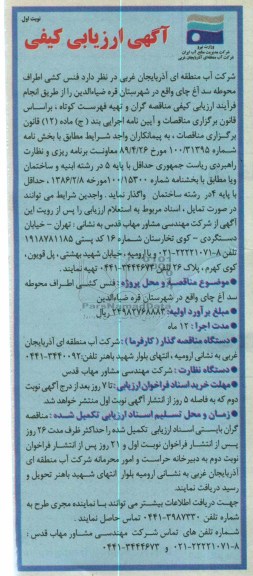 نوبت اول
وزارت نیرو
شرکت مدیریت منابع آب ایران
شرکت آب منطقه‌ای آذربایجان غربی
آگهی ارزیابی کیفی
شرکت آب منطقه ای آذربایجان غربی در نظر دارد فنس کشی اطراف
محوطه سد آغ چای واقع در شهرستان قره ضیاءالدین را از طریق انجام
فرآیند ارزیابی کیفی مناقصه گران و تهیه فهرست کوتاه ، براساس
قانون برگزاری مناقصات و آیین نامه اجرایی بند (ج) ماده (۱۲) قانون
برگزاری مناقصات ، به پیمانکاران واجد شرایط مطابق با بخش نامه
شماره ۱۰۰/۳۱۳۹۵ مورخ ۸۹/۴/۲۶ معاونت برنامه ریزی و نظارت
راهبردی ریاست جمهوری حداقل با پایه ۵ در رشته ابنیه و ساختمان
ویا مطابق با بخشنامه شماره ۱۰۰/۱۵۳۰۰ مورخه ۱۳۸۶/۲/۸ ، حداقل
با پایه ۴در رشته ساختمان واگذار نماید . واجدین شرایط می توانند
در صورت تمایل ، اسناد مربوط به استعلام ارزیابی را پس از رویت این
آگهی از شرکت مهندسی مشاور مهاب قدس به نشانی : تهران - خیابان
دستگردی - کوی تخارستان شماره ۱۶ کد پستی ۱۹۱۸۷۸۱۱۸۵
تلفن ۸-۲۲۲۲۱۰۷۱-۰۲۱ و یا ارومیه ، خیابان شهید بهشتی ، پل قویون ،
کوی کهرم ، پلاک ۲۶ تلفن: ۳۴۴۴۶۷۳-۰۴۴۱ تهیه نمایند .
موضوع مناقصه و محل پروژه : فنس کشی اطراف محوطه
سد آغ چای واقع در شهرستان قره ضیاءالدین
مبلغ برآورد اولیه: ۲۴۹۸۲۷۶۸۸۸۳ ریال
مدت اجرا : ۱۲ ماه
دستگاه مناقصه گذار (کارفرما) : شرکت آب منطقه ای آذربایجان
غربی به نشانی ارومیه ، انتهای بلوار شهید باهنر تلفن: ۳۴۴۰۰۹۲-۰۴۴۱
دستگاه نظارت : شرکت مهندسی مشاور مهاب قدس
مهلت خرید اسناد فراخوان ارزیابی: تا ۷ روز بعد از درج آگهی نوبت
دوم که به فاصله ۵ روز از انتشار آگهی نوبت اول منتشر خواهد شد
زمان و محل تسلیم اسناد ارزیابی تکمیل شده : مناقصه
گران بایستی اسناد ارزیابی تکمیل شده را حداکثر ظرف مدت ۲۶ روز
پس از انتشار فراخوان نوبت اول و ۲۱ روز پس از انتشار فراخوان
نوبت دوم به دبیرخانه حراست و امور محرمانه شرکت آب منطقه ای
آذربایجان غربی به نشانی ارومیه بلوار انتهای شهید باهنر تحویل و
رسید دریافت نمایند.
جهت دریافت اطلاعات بیشتر می توانند با نماینده مجری طرح به
شماره تلفن ۳۹۸۷۳۳۰-۰۴۴۱ تماس حاصل نمایند .
شماره تلفن های تماس شرکت مهندسی مشاور مهاب قدس :
۸-۲۲۲۲۱۰۷۱-۰۲۱ و ۳۴۴۴۶۷۳-۰۴۴۱